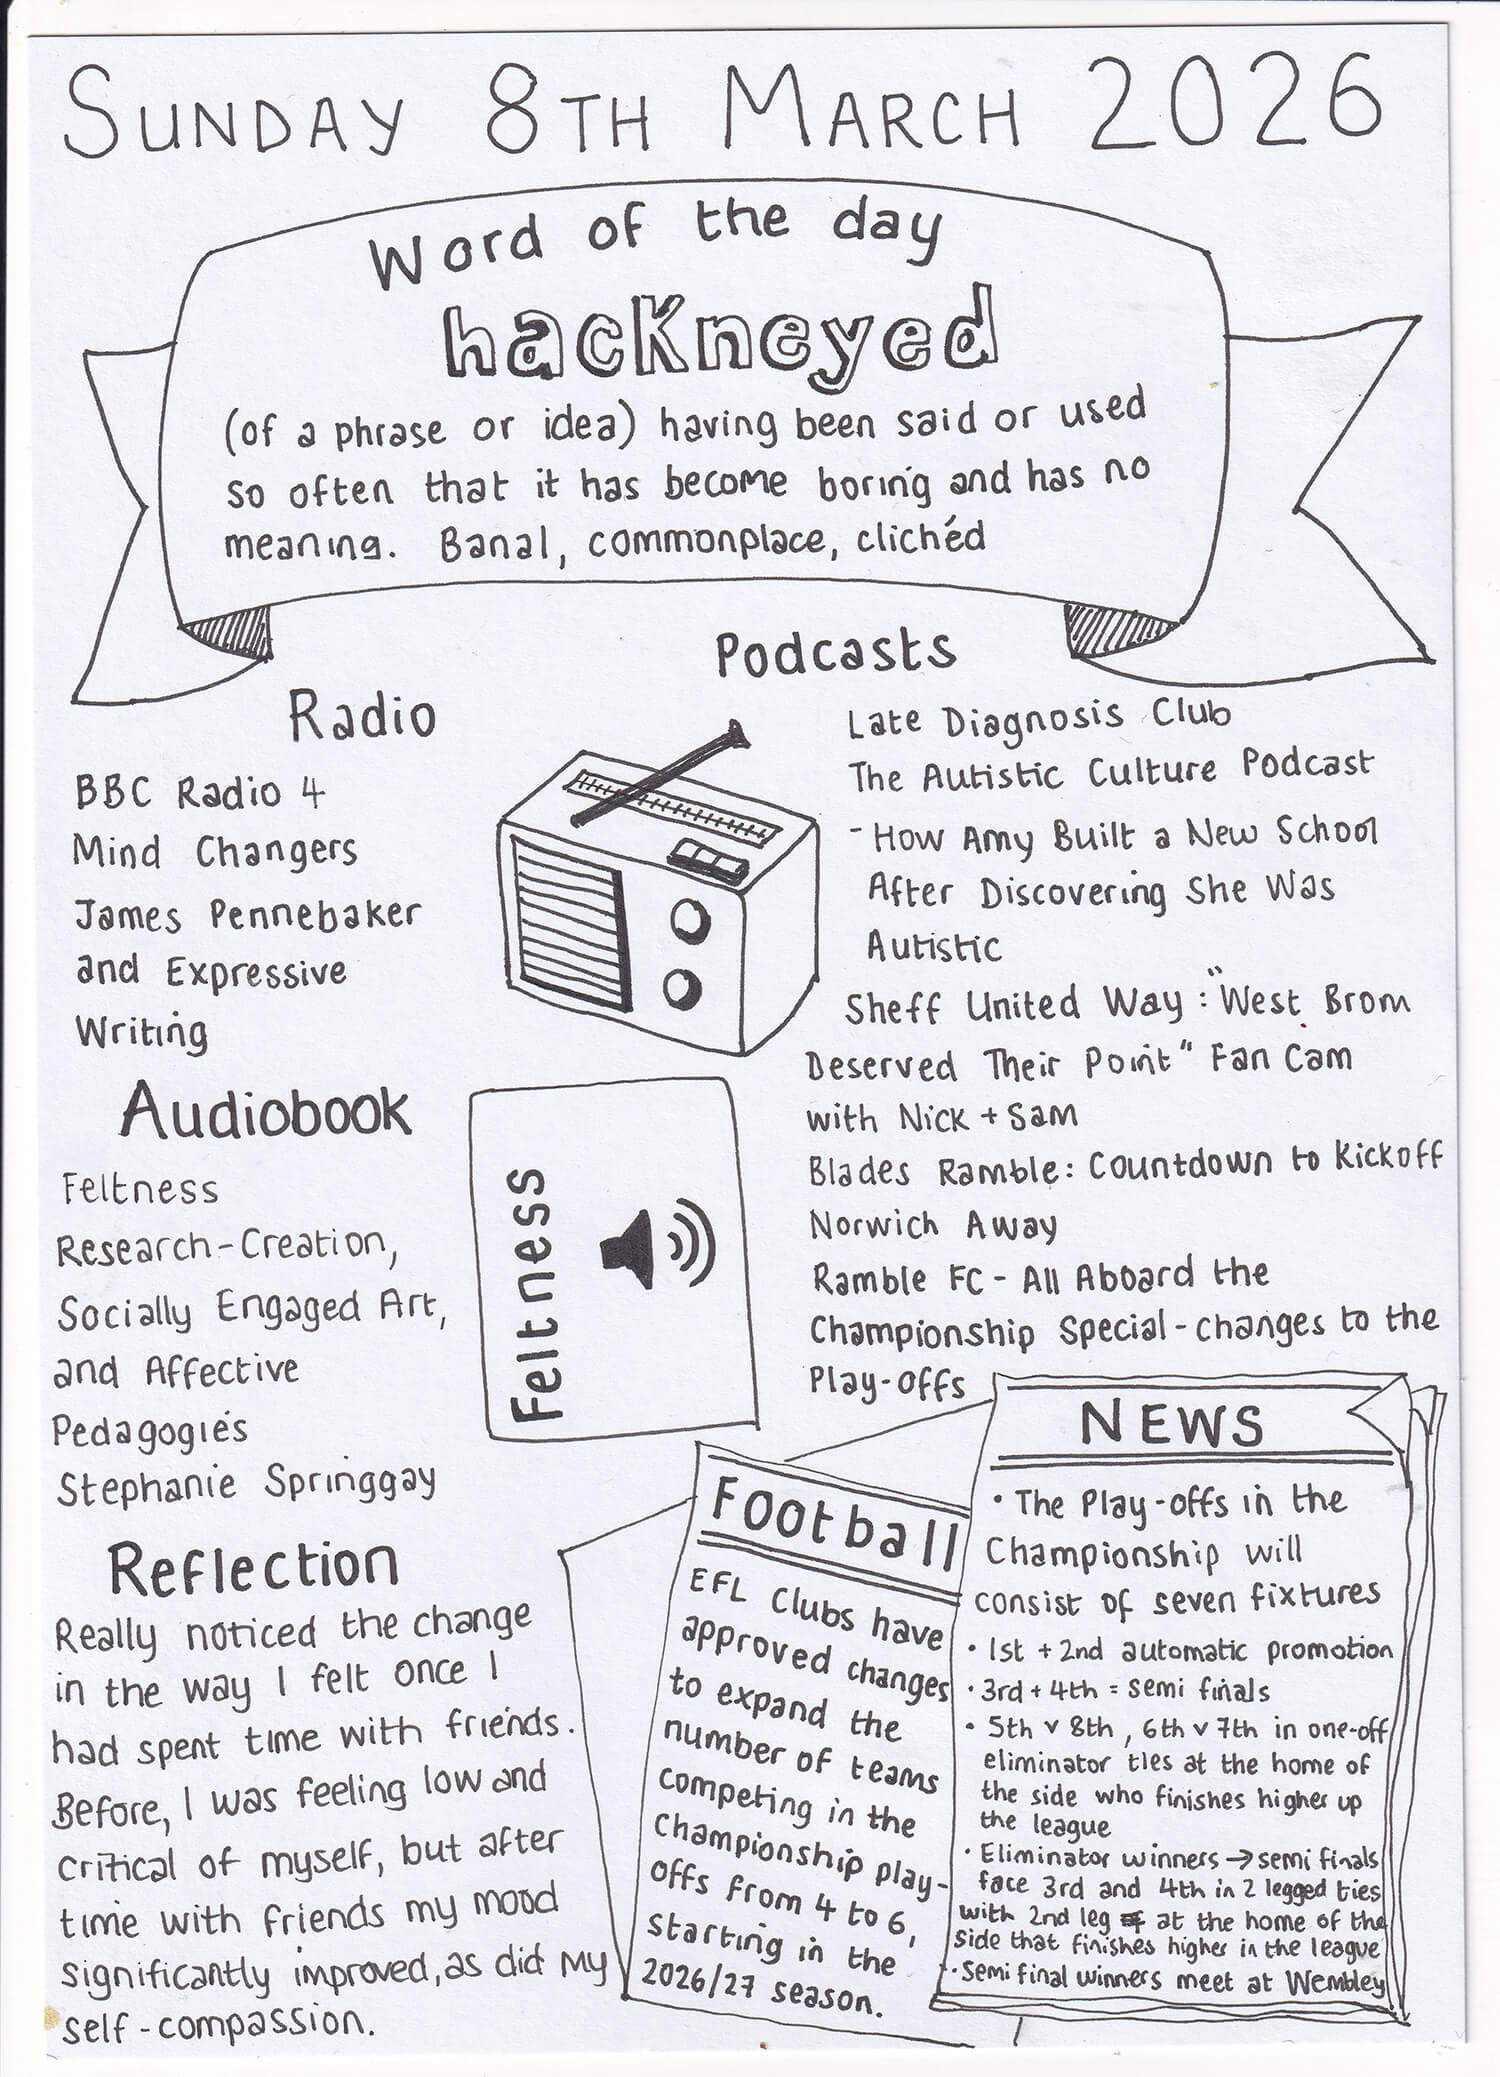 SUNDAY 8TH MARCH 2026
Word of the day
hackneyed
(of a phrase or idea) having been said or used
so often that it has become boring and has no
meaning. Banal, commonplace, clichéd
Radio
BBC Radio 4
Mind Changers
James Pennebaker
and Expressive
Writing
Podcasts
Late Diagnosis Club
The Autistic Culture Podcast
- How Amy Built a New School
After Discovering She Was
Autistic
Sheff United Way : "West Brom
Deserved Their Point" Fan Cam
with Nick + Sam
Blades Ramble: Countdown to Kickoff
Norwich Away
Ramble FC - All Aboard the
Championship Special - changes to the
Play-offs
Audiobook
Feltness
Research-Creation,
Socially Engaged Art,
and Affective
Pedagogies
Stephanie Springgay
Feltness
Reflection
Really noticed the change
in the way I felt once I
had spent time with friends.
Before, I was feeling low and
critical of myself, but after
time with friends my mood
significantly improved, as did my
self-compassion.
Football
EFL Clubs have
approved changes
to expand the
number of teams
competing in the
Championship play-
offs from 4 to 6,
starting in the
2026/27 season.
NEWS
• The Play-offs in the
Championship will
consist of seven fixtures
• 1st + 2nd automatic promotion
• 3rd + 4th = semi finals
• 5th v 8th, 6th v 7th in one-off
eliminator ties at the home of
the side who finishes higher up
the league
• Eliminator winners → semi finals
face 3rd and 4th in 2 legged ties
with 2nd leg at the home of the
side that finishes higher in the league
• Semi final winners meet at Wembley